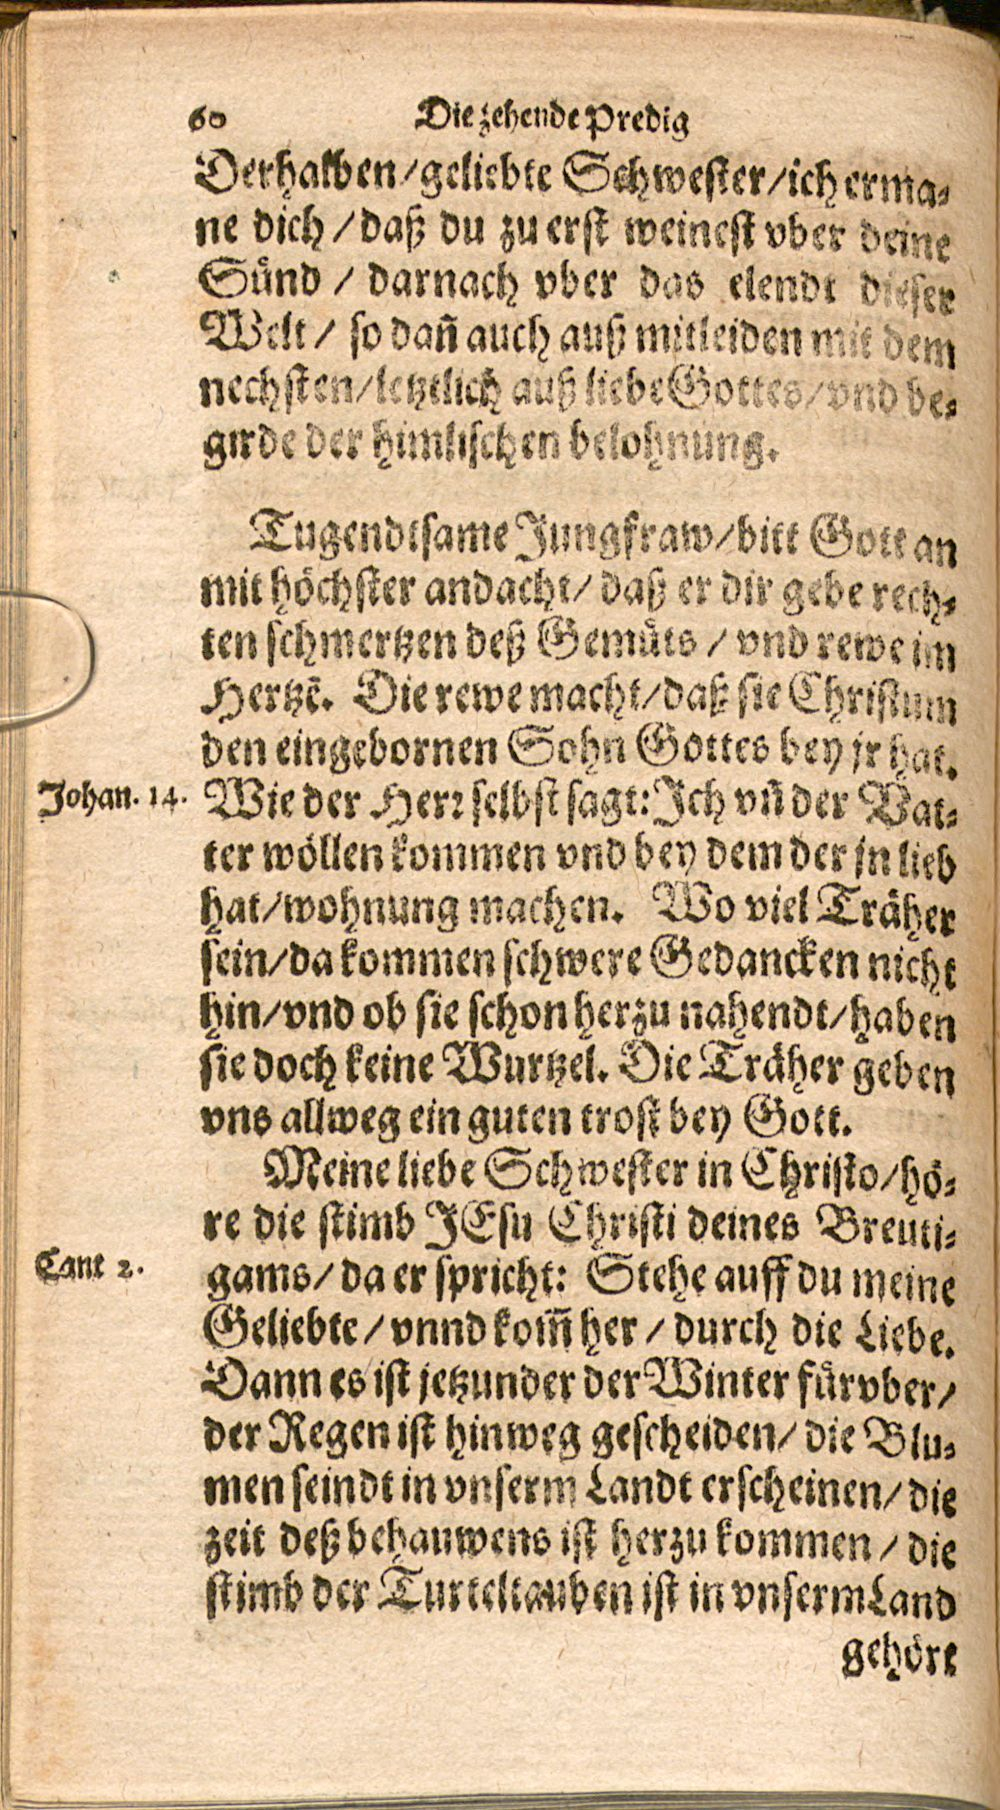 60 Die zehende Predig
Derhalben/geliebte Schwester/ich erma-
ne dich/daß du zu erst weinest vber deine
Sünd/darnach vber das elendt dieser
Welt/ so dañ auch auß mitleiden mit dem
nechsten/letztlich auß liebe Gottes/vnd be-
girde der himlischen belohnung.
Tugendtsame Jungfraw/bitt Gott an
mit höchster andacht/ daß er dir gebe rech-
ten schmertzen deß Gemüts/vnd rewe im
Hertzē. Die rewe macht/daß sie Christum
den eingebornen Sohn Gottes bey jr hat.
Johan. 14. Wie der Herr selbst sagt: Ich vñ der Vat-
ter wöllen kommen vnd bey dem der jn lieb
hat/wohnung machen. Wo viel Träher
sein/da kommen schwere Gedancken nicht
hin/vnd ob sie schon herzu nahendt/haben
sie doch keine Wurtzel. Die Träher geben
vns allweg ein guten trost bey Gott.
Meine liebe Schwester in Christo/hö-
re die stimb JEsu Christi deines Breuti-
Cant 2. gams/da er spricht: Stehe auff du meine
Geliebte/vnnd kom̃ her/durch die Liebe.
Dann es ist jetzunder der Winter fürvber/
der Regen ist hinweg gescheiden/die Blu-
men seindt in vnserm Landt erscheinen/die
zeit deß behauwens ist herzu kommen/die
stimb der Turteltauben ist in vnserm Land
gehört